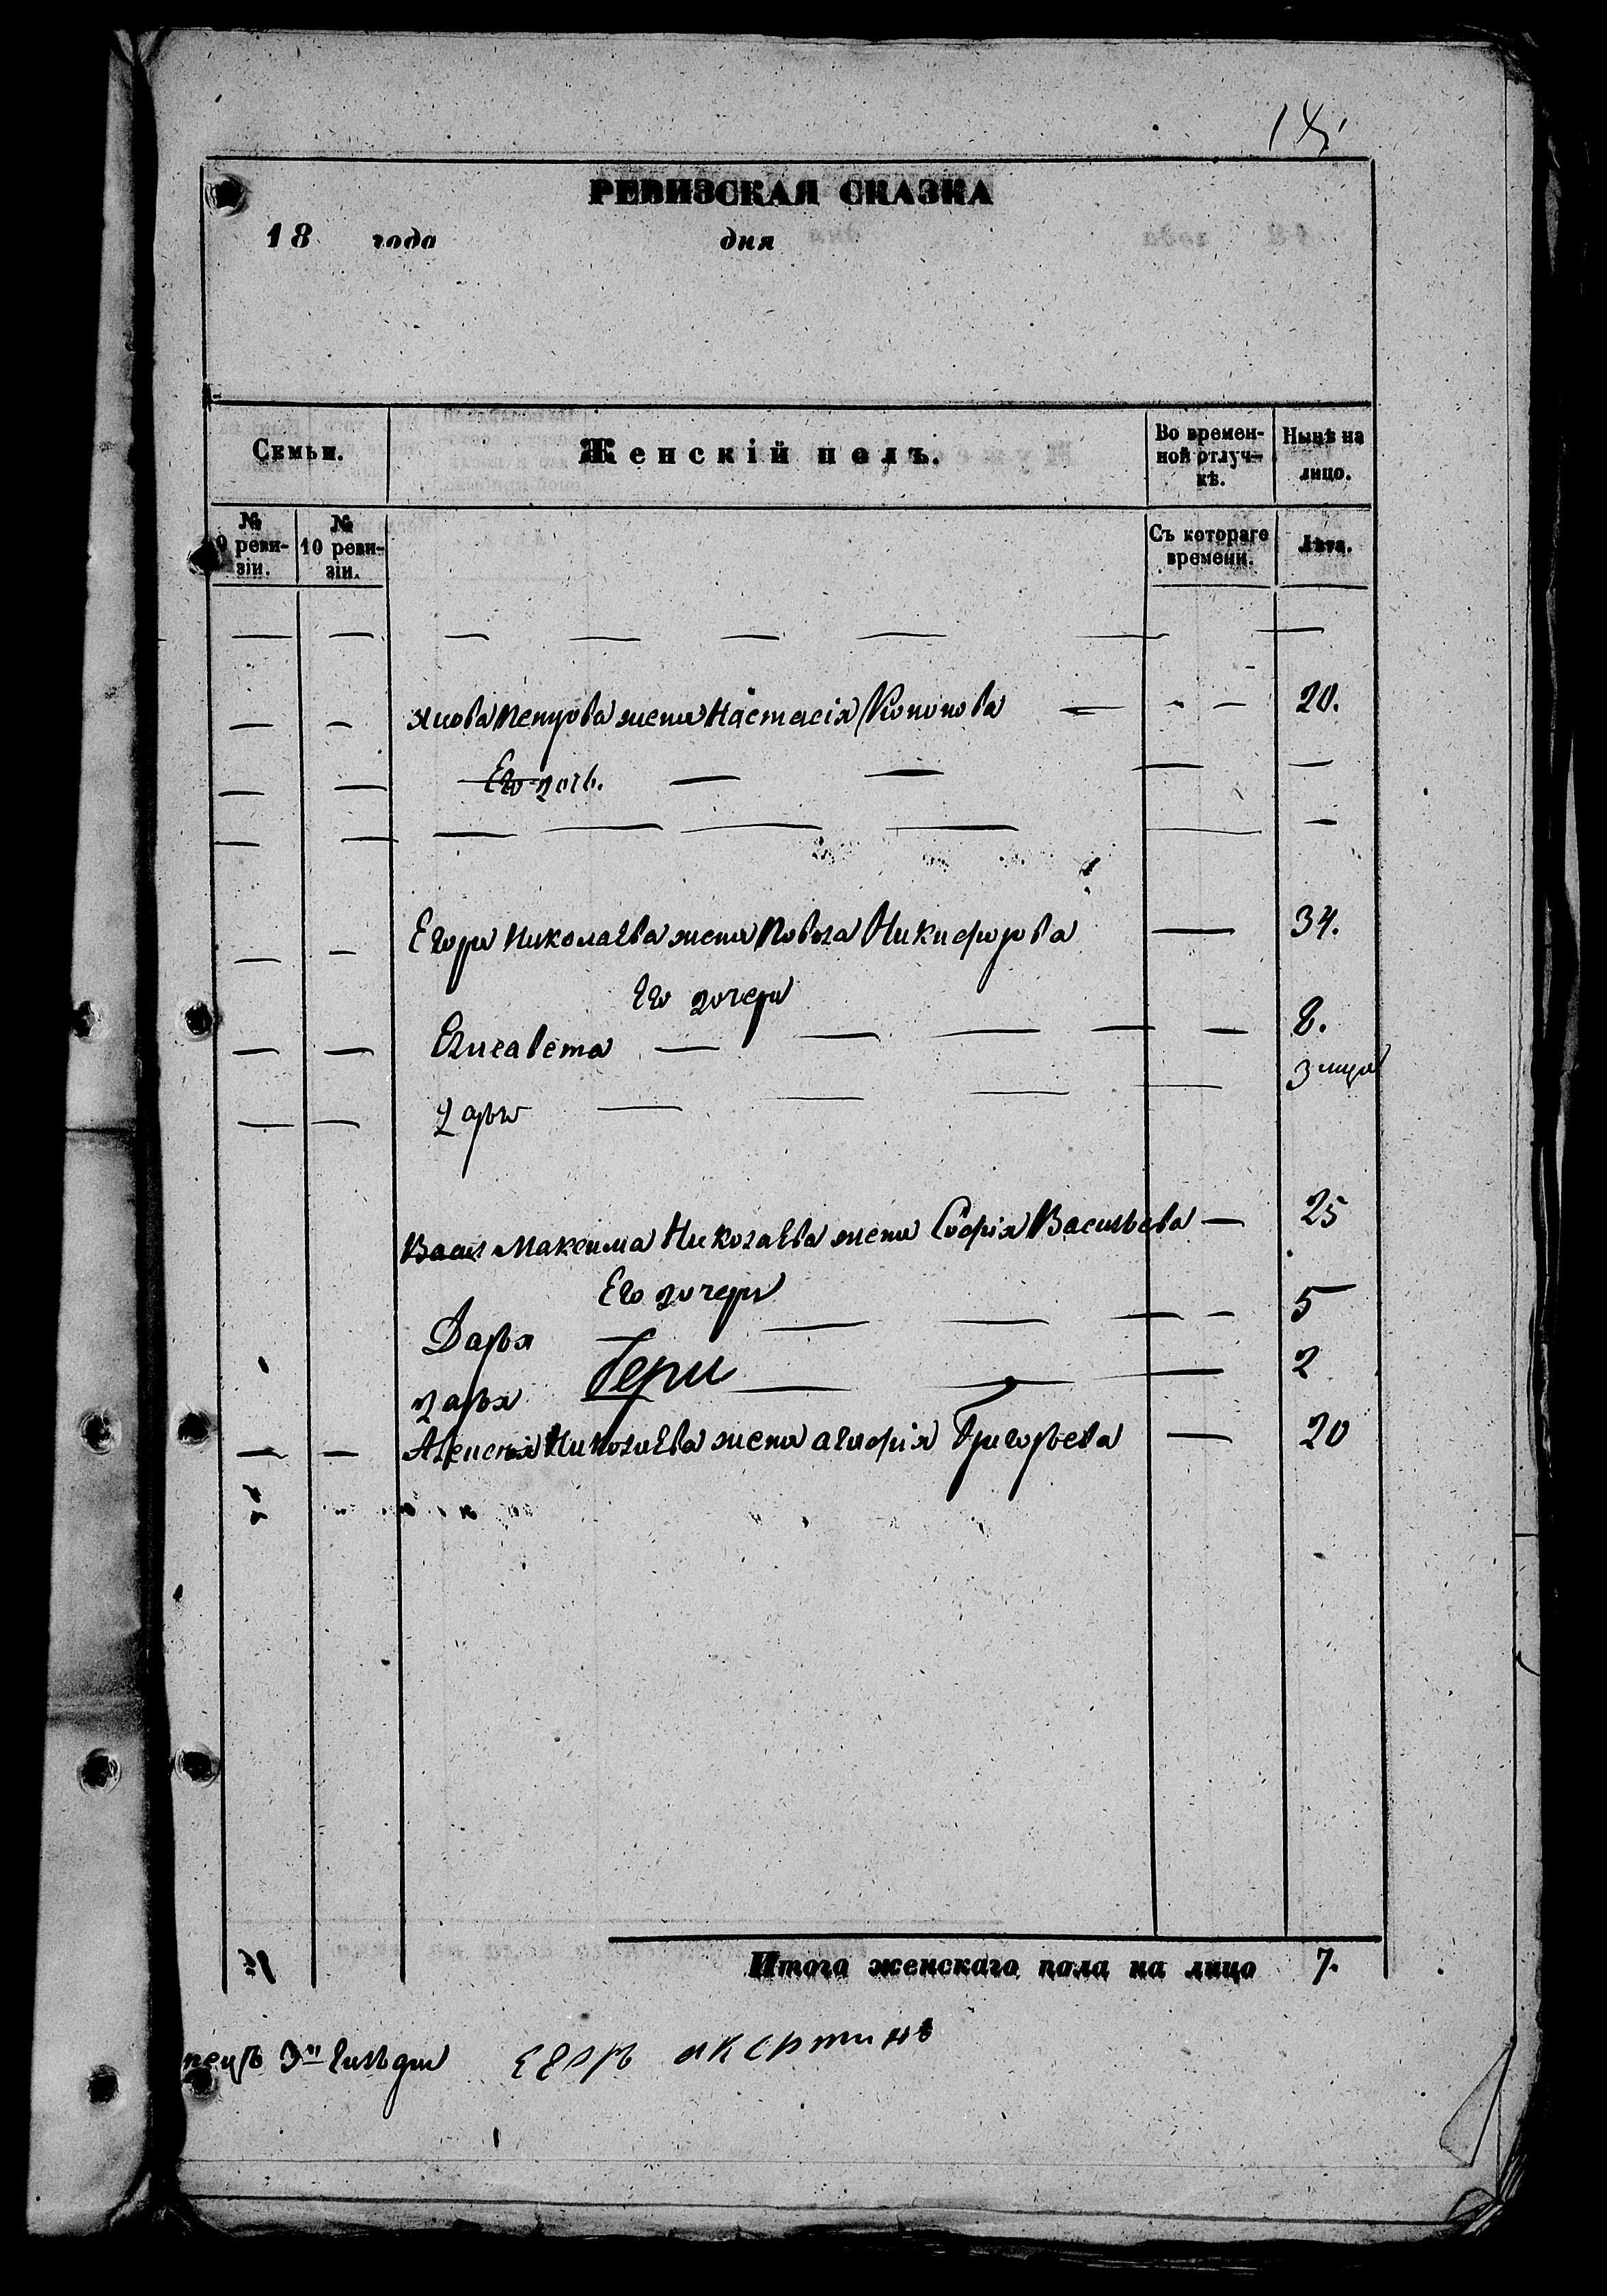 РЕВИЗСКАЯ СКАЗКА
18 года дня
Семьи. Женскій полъ. Во времен-ной отлуч-кѣ. Нынѣ на лицо.
№ 9 реви-зіи. № 10 реви-зіи. Съ котораго времени. Лѣта.
— — — — — — — —
— — Якова Петрова жена Настасія Кононова — — 20.
— — Его дочь. — — — —
— — — — — — — —
— — Егора Николаева жена Никифорова — 34.
Его дочери
— — Елисавета — — — — — 8.
— — Дарья — — — — 3
Максима Николаева жена Софія Васильева — 25
Его дочери
Дарья — — — — — 5
Дарья — — — 2
— — Николаева жена Григорьева — 20
Итого женскаго пола на лицо 7.